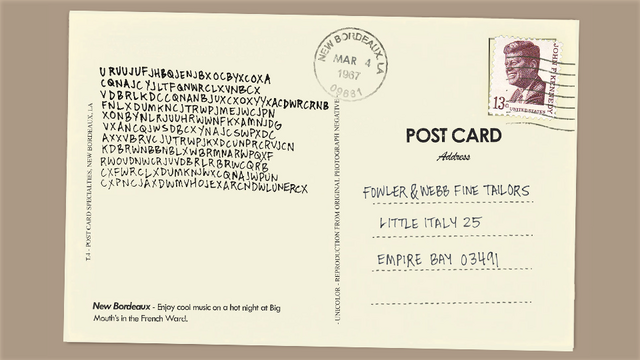 URUUJUFJHBQJENJBXOCBYXCOXA
CQNAJCYJLTFQNWRCLXVNBCX
VDBRLKDCCQNANBJUXCXOXYYXACDWRCRNB
FNLXDUMKNCJTRWPJMEJWCJPN
XONBYNLRJUUHRWWNFKXAMNJDG
VXANCQJWSDBCXYNAJCSWPXDC
AXXVBRVCJUTRWPJKXDCUNPRCRVJCN
KDBRWNBBNBLXWBRMNARWPQXF
RWOUDNWCRJUVDBRLRBRWCQRB
CXFWRCLXDUMKNJWXCQNAJWPUN
CXPNCJAXDWMVHOJEXARCNDWLUNERCX
New Bordeaux - Enjoy cool music on a hot night at Big
Mouth's in the French Ward.
T.4 - POST CARD SPECIALTIES, NEW BORDEAUX, LA
- UNICOLOR - REPRODUCTION FROM ORIGINAL PHOTOGRAPH NEGATIVE
NEW BORDEAUX, LA
MAR 4
1967
09661
JOHN F. KENNEDY
13c
UNITED STATES
POST CARD
Address
FOWLER & WEBB FINE TAILORS
LITTLE ITALY 25
EMPIRE BAY 03491